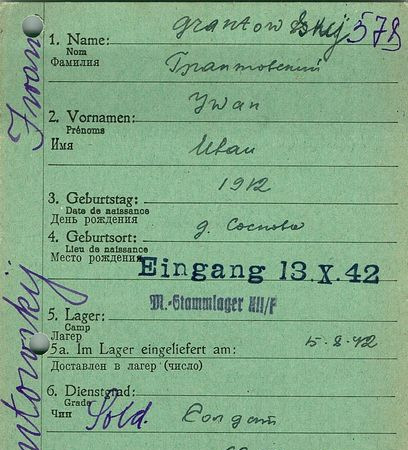 grantowskij 578
1. Name:
Nom
Фамилия
Грантовский
Iwan
2. Vornamen:
Prénoms
Имя
Иван
1912
3. Geburtstag:
Date de naissance
День рождения
д. Соснова
4. Geburtsort:
Lieu de naissance
Место рождения
Eingang 13.X.42
M.-Stammlager XII/F
5. Lager:
Camp
Лагер
5a. Im Lager eingeliefert am: 15-8-42
Доставлен в лагер (число)
6. Dienstgrad:
Grade
Чин
Sold. Солдат
Iwan
ntowskij